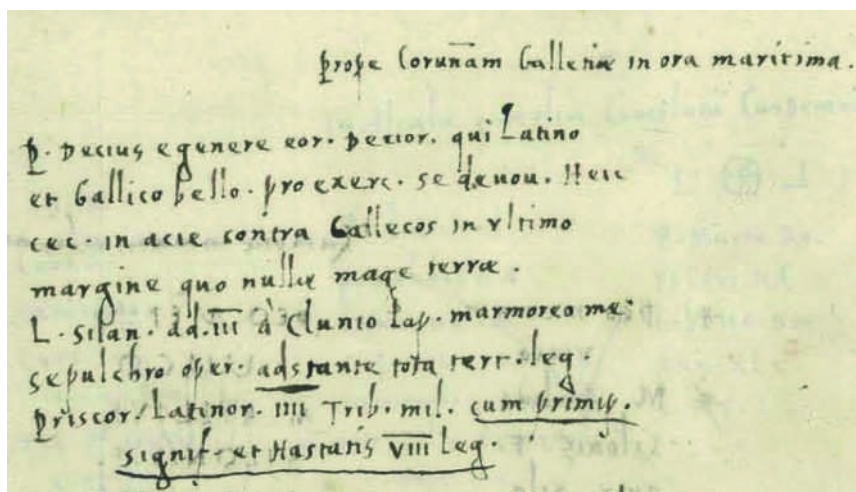 prope Corunam Galleciæ in ora maritima.
P. Decius e genere eor. Decior. qui Latino
et Gallico bello. pro exerc. se deuou. Heic
cec. in acie contra Gallecos in vltimo
margine quo nullæ mage terræ.
L. Silan. dd. III à Clunio Lap. marmoreo me
sepulchro oper. adstante tota tert. leg.
Priscor. Latinor. IIII Trib. mil. cum primip.
signif. et Hastatis VIII Leg.